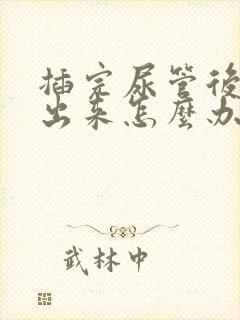 插完尿管後
出来怎麼办
武林中